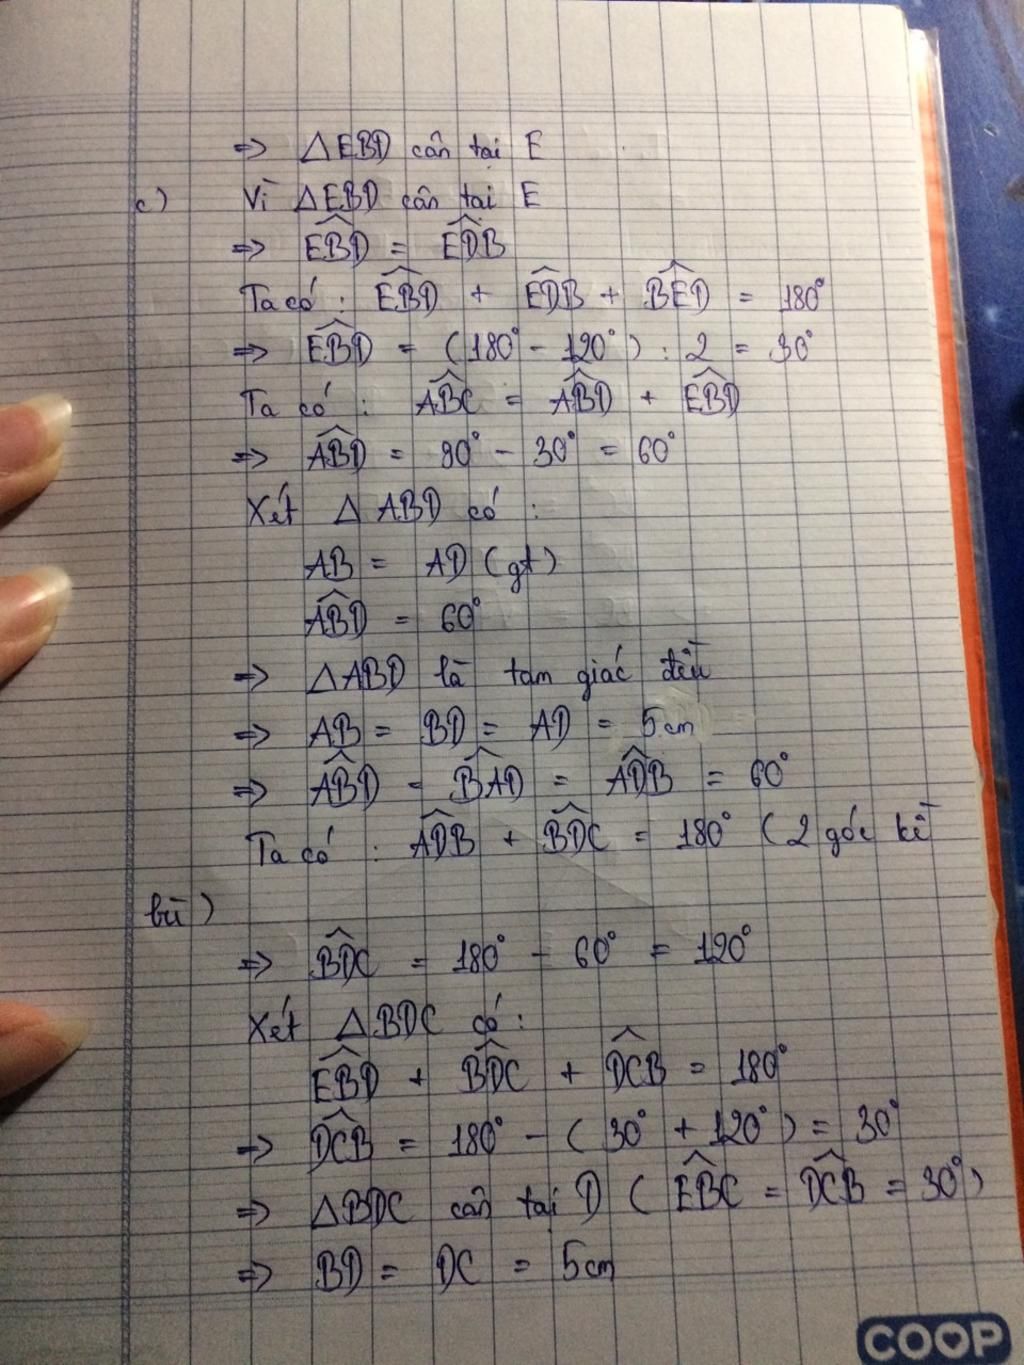 => △EBD cân tại E
c) Vì △EBD cân tại E
=> \widehat{EBD} = \widehat{EDB}
Ta có : \widehat{EBD} + \widehat{EDB} + \widehat{BED} = 180°
=> \widehat{EBD} = (180° - 120°) : 2 = 30°
Ta có : \widehat{ABC} = \widehat{ABD} + \widehat{EBD}
=> \widehat{ABD} = 90° - 30° = 60°
Xét △ ABD có :
AB = AD (gt)
\widehat{ABD} = 60°
=> △ABD là tam giác đều
=> AB = BD = AD = 5cm
=> \widehat{ABD} = \widehat{BAD} = \widehat{ADB} = 60°
Ta có : \widehat{ADB} + \widehat{BDC} = 180° (2 góc kề
bù)
=> \widehat{BDC} = 180° - 60° = 120°
Xét △BDC có :
\widehat{EBD} + \widehat{BDC} + \widehat{DCB} = 180°
=> \widehat{DCB} = 180° - (30° + 120°) = 30°
=> △BDC cân tại D (\widehat{EBC} = \widehat{DCB} = 30°)
=> BD = DC = 5cm
COOP